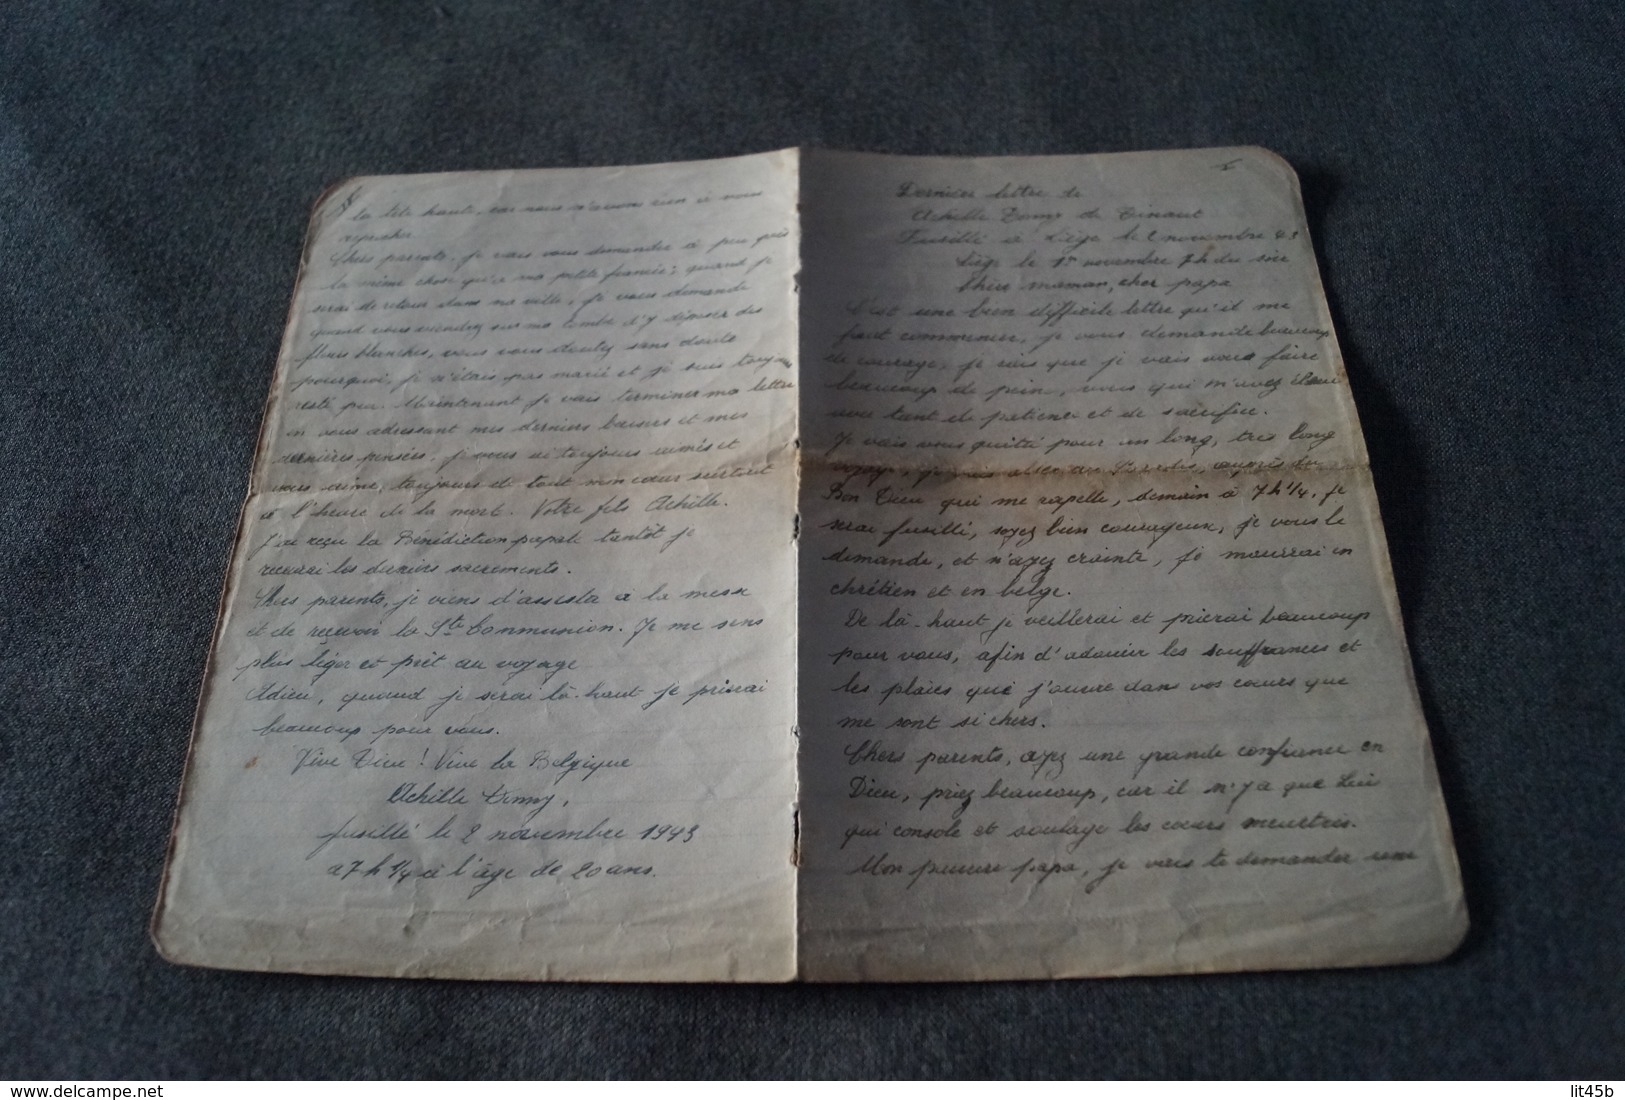 la tête haute, car nous n'avons rien à nous
reprocher.
Chers parents, je vais vous demander à peu près
la même chose qu'à ma petite fiancée; quand je
serai de retour dans ma ville, je vous demande
quand vous viendrez sur ma tombe d'y déposer des
fleurs blanches, vous vous doutez sans doute
pourquoi, je n'étais pas marié et je suis toujours
resté pur. Maintenant je vais terminer ma lettre
en vous adressant mes derniers baisers et mes
dernières pensées, je vous ai toujours aimés et
vous aime, toujours de tout mon cœur surtout
à l'heure de la mort. Votre fils Achille.
J'ai reçu la Bénédiction papale tantôt je
recevrai les derniers sacrements.
Chers parents, je viens d'assista à la messe
et de reçevoir la Ste Communion. Je me sens
plus léger et prêt au voyage
Adieu, quand je serai là-haut je prierai
beaucoup pour vous.
Vive Dieu! Vive la Belgique
Achille
fusillé le 2 novembre 1943
a 7 h 1/4 à l'âge de 20 ans.
1
Dernière lettre de
Achille de
Fusillé à Liège le 2 novembre 43
Liège le 1er novembre 7h du soir
Chère maman, cher papa
C'est une bien difficile lettre qu'il me
faut commencer, je vous demande beaucoup
de courage, je sais que je vais vous faire
beaucoup de peine, vous qui m'avez élevé
avec tant de patience et de sacrifice.
Je vais vous quitté pour un long, très long
voyage, je vais aller au Paradis, auprès du
Bon Dieu qui me rapelle, demain à 7 h 1/4, je
serai fusillé, soyez bien courageux, je vous le
demande, et n'ayez crainte, je mourrai en
chrétien et en belge.
De là-haut je veillerai et prierai beaucoup
pour vous, afin d'adoucir les souffrances et
les plaies que j'ouvre dans vos cœurs que
me sont si chers.
Chers parents, ayez une grande confiance en
Dieu, priez beaucoup, car il n'y a que Lui
qui console et soulage les cœurs meurtris.
Mon pauvre papa, je vais te demander une
delcampe.net
lit45b